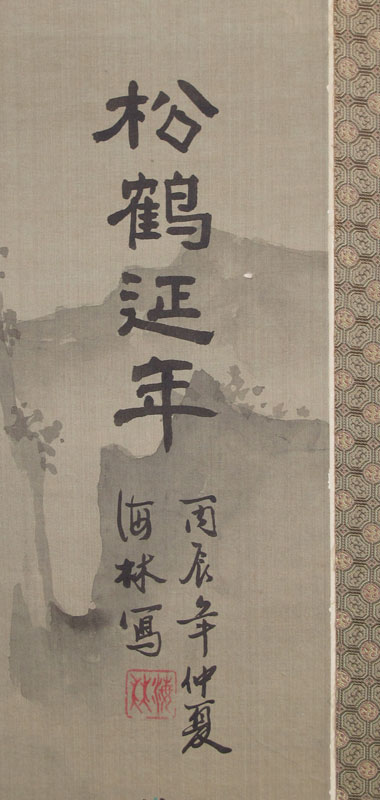 松鶴延年
丙辰年仲夏
海林寫
海林